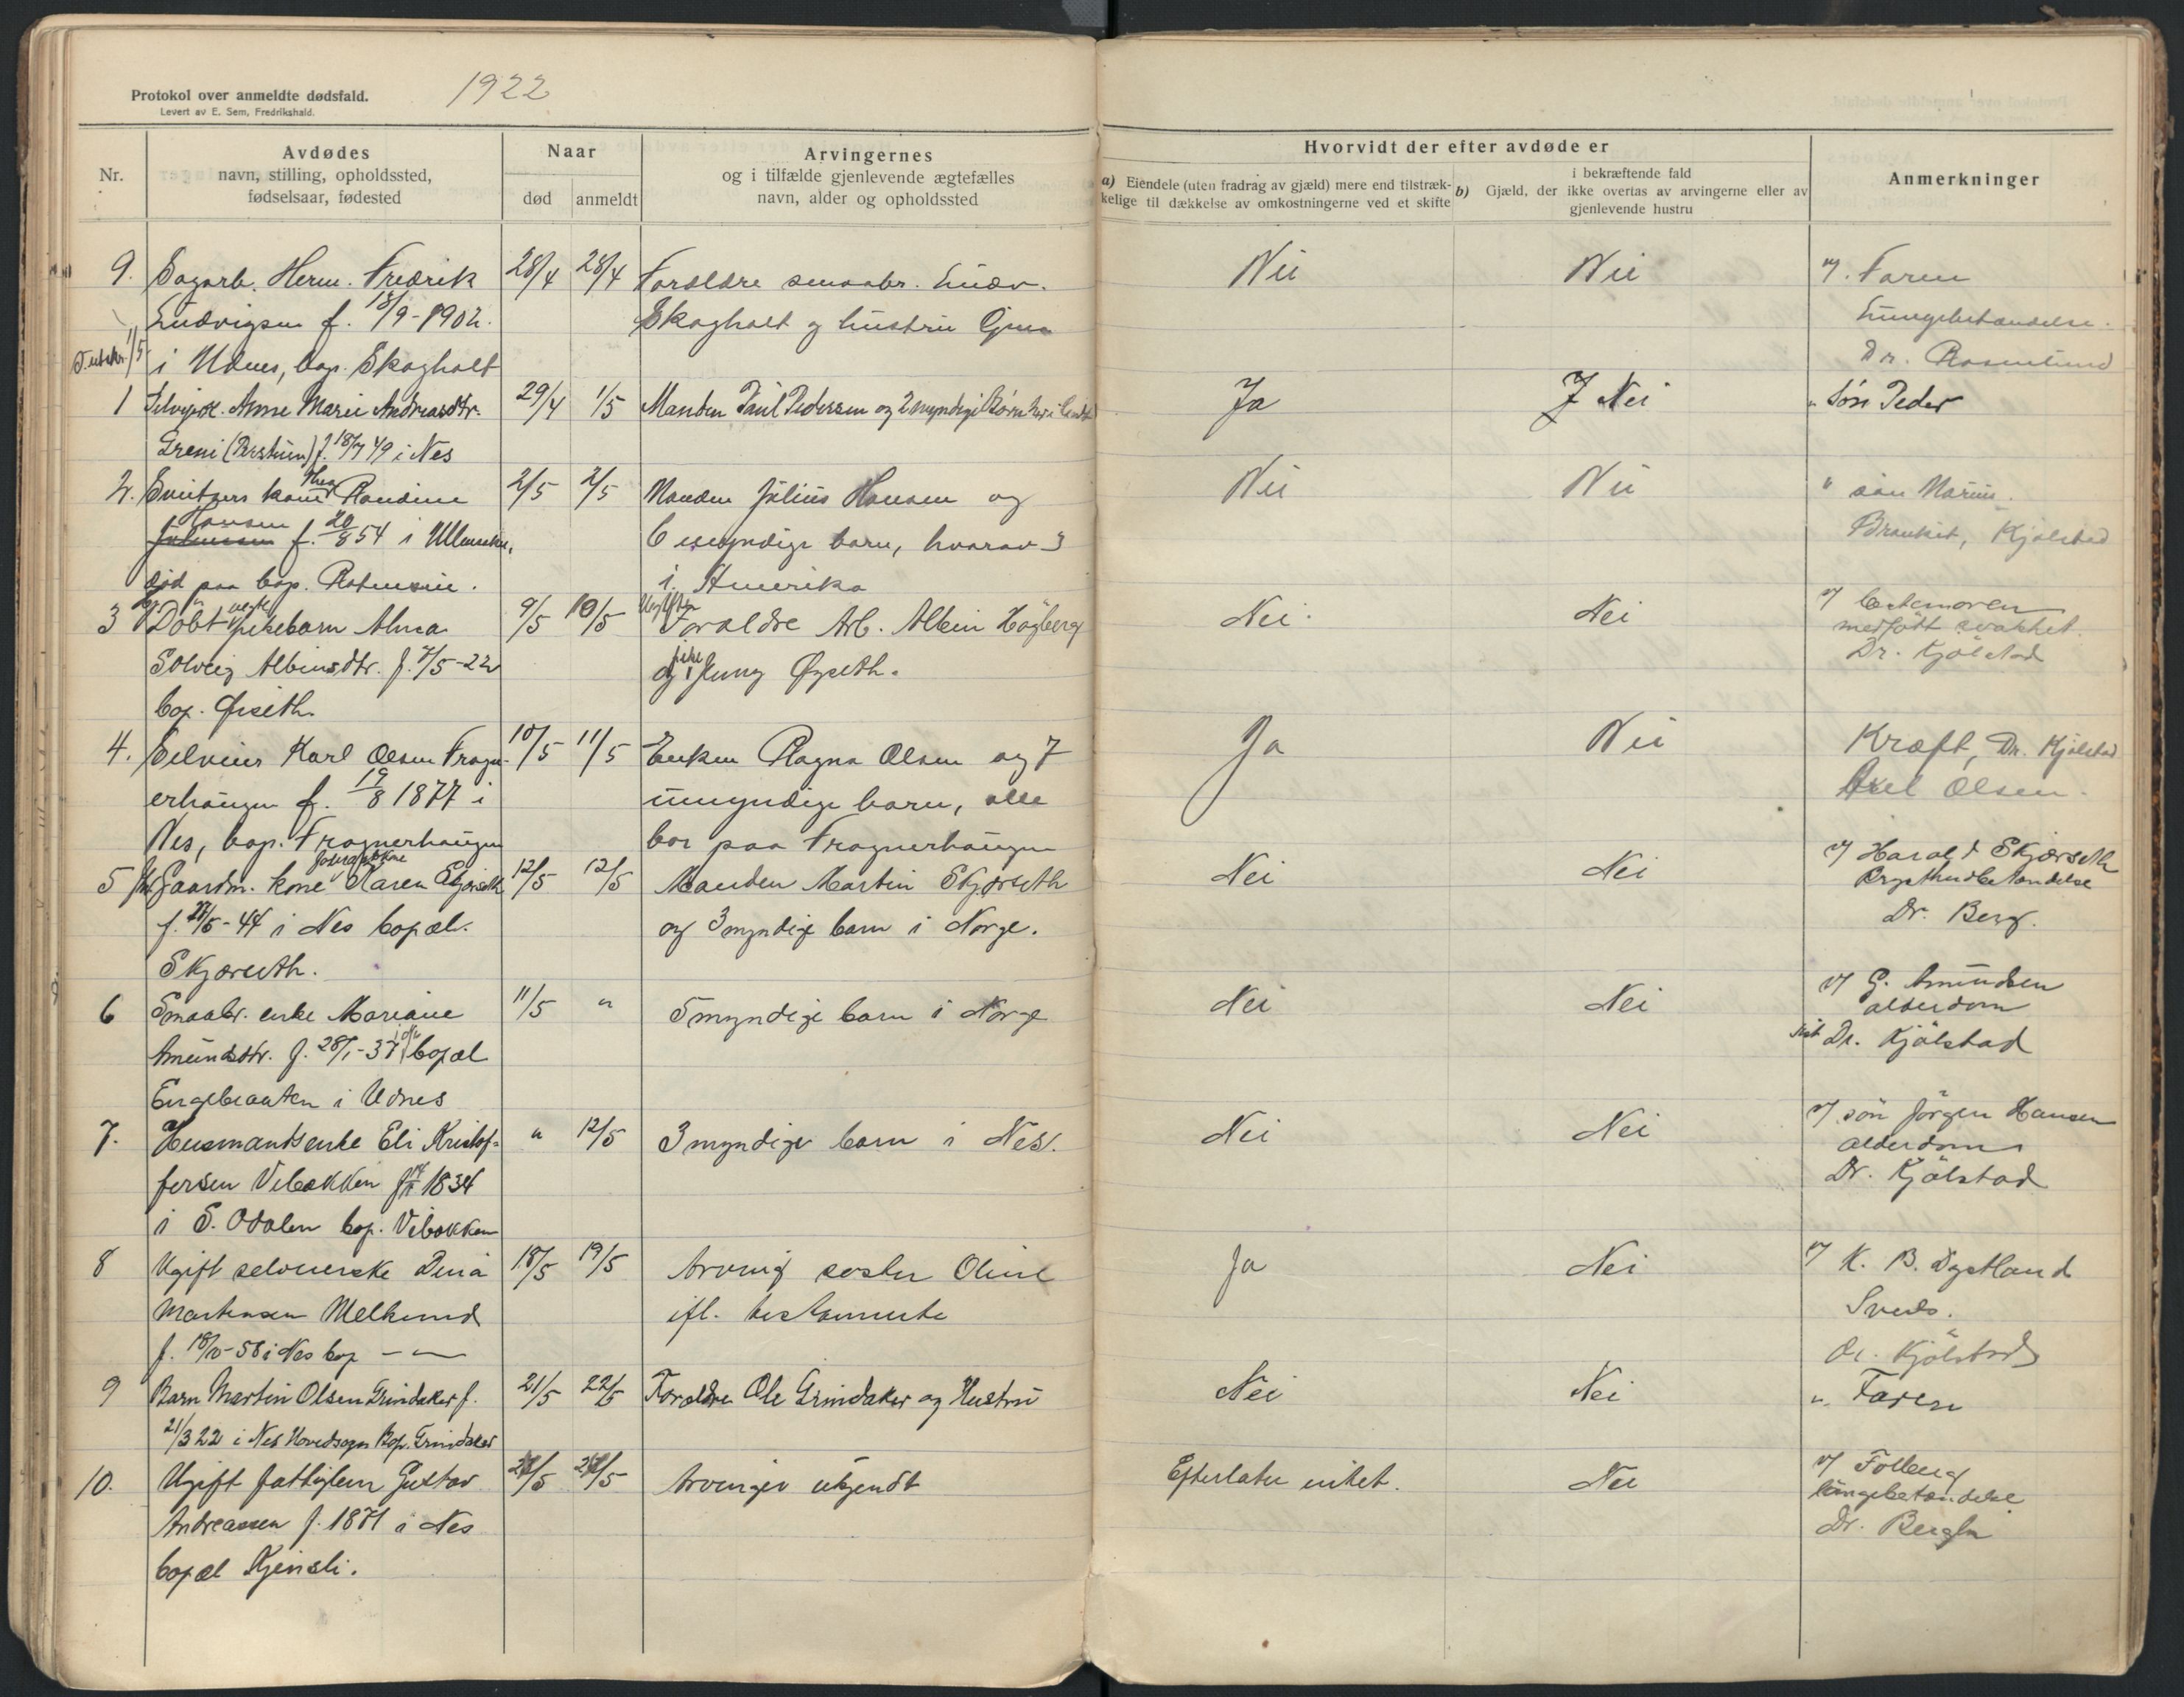 1922
Protokol over anmeldte dødsfald.
Levert av E. Sem, Fredrikshald.
Nr.
Avdødes
navn, stilling, opholdssted,
fødselsaar, fødested
Naar
død
anmeldt
Arvingernes
og i tilfælde gjenlevende ægtefælles
navn, alder og opholdssted
Hvorvidt der efter avdøde er
a) Eiendele (uten fradrag av gjæld) mere end tilstræk-
kelige til dækkelse av omkostningerne ved et skifte
i bekræftende fald
b) Gjæld, der ikke overtas av arvingerne eller av
gjenlevende hustru
Anmerkninger
9. Sagarb. Herm. Fredrik 28/4 28/4 Forældre smaabr. Ludv. Nei Nei v/ Faren
Ludvigsen f. 18/9-1902. Skogholt og hustru Lungebetændelse.
1/5 i Udnes, bop. Skogholt Dr.
1 Anne Marie Andreasdtr. 29/4 1/5 Manden Paul Pedersen og 2 myndige Børn her i Landet Ja J Nei " Søn Peder
Greni f. 18/7 49 i Nes
2. kone Thea Randine 2/5 2/5 Manden Julius Hansen og Nei Nei " søn Marius.
Hansen f. 20/8 54 i Ullensaker, 6 myndige barn, hvorav 3 Kjølstad
død paa bop. i Amerika
3 Døbt pikebarn Alma 9/5 10/5 Forældre Arb. Albin Högberg Nei. Nei v/ Bestemoren
Solveig Albinsdtr. f. 7/5-22 og pike Jenny Øyseth. medfødt svakhet.
Dr. Kjölstad
bop. Øiseth
4. Selveier Karl Olsen Fragn- 10/5 11/5 Enken Ragna Olsen og 7 Ja Nei Kræft, Dr. Kjølstad
erhaugen f. 19/8 1877 i umyndige barn, alle Axel Olsen.
Nes, bop. Fragnerhaugen bor paa Fragnerhaugen
5 Gaardm. kone Karen Skjærseth 12/5 12/5 Manden Martin Skjærseth Nei Nei v/ Harald Skjærseth
f. 27/5-44 i Nes bopæl. og 3 myndige barn i Norge. Brysthindebetændelse
Skjærseth. Dr. Berg.
6 Smaabr. enke Mariane 11/5 " 5 myndige barn i Norge Nei Nei v/ G. Amundsen
Amundsdtr. f. 28/1-37 bopæl alderdom
Dr. Kjölstad
Engebraaten i Udnes
7. Husmandsenke Eli Kristof- " 12/5 3 myndige barn i Nes. Nei Nei v/ søn Jørgen Hansen
fersen Vibakken 1834 alderdom
i S. Odalen bop. Vibakken Dr. Kjölstad
8 Ugift selveierske Dina 18/5 19/5 Arving søster Oline Ja Nei v/ K. B. Dystland
Martinsen Melkerud ifl. testamente
f. 18/10-58 i Nes bop — " — Dr. Kjölstad
9 Barn Martin Olsen Grindaker f. 21/5 22/5 Forældre Ole Grindaker og Hustru Nei Nei " Faren
21/3 22 i Nes Hovedsogn Bop. Grindaker
10. Ugift fattiglem Gustav Arvinger ukjendt Efterlater intet. Nei v/ Folberg
Andreassen f. 1871 i Nes lungebetændelse
bopæl Kjensli. Dr. Bergh